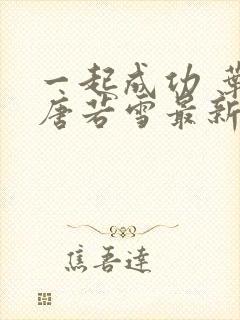 一起成功 葉
唐若雪最新
焦吾達